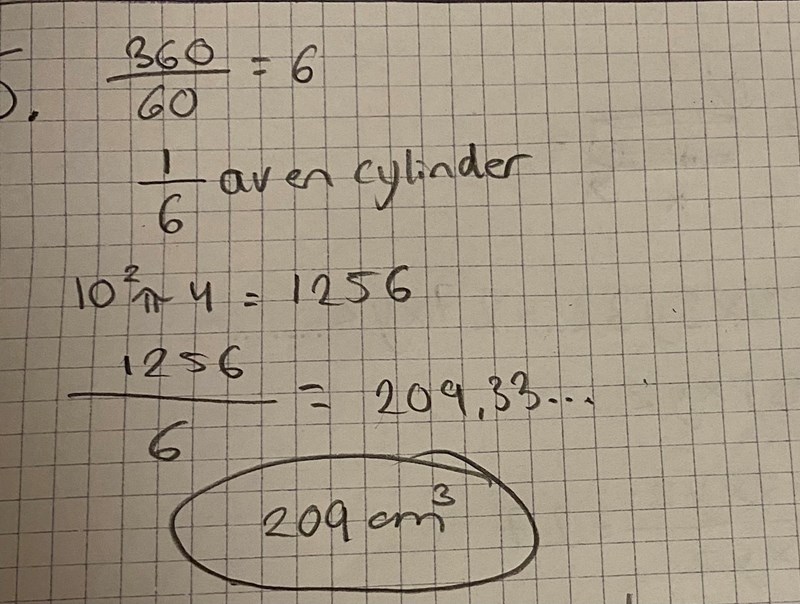 5. 360/60 = 6
1/6 av en cylinder
10²π 4 = 1256
1256/6 = 209,33...
209 cm³